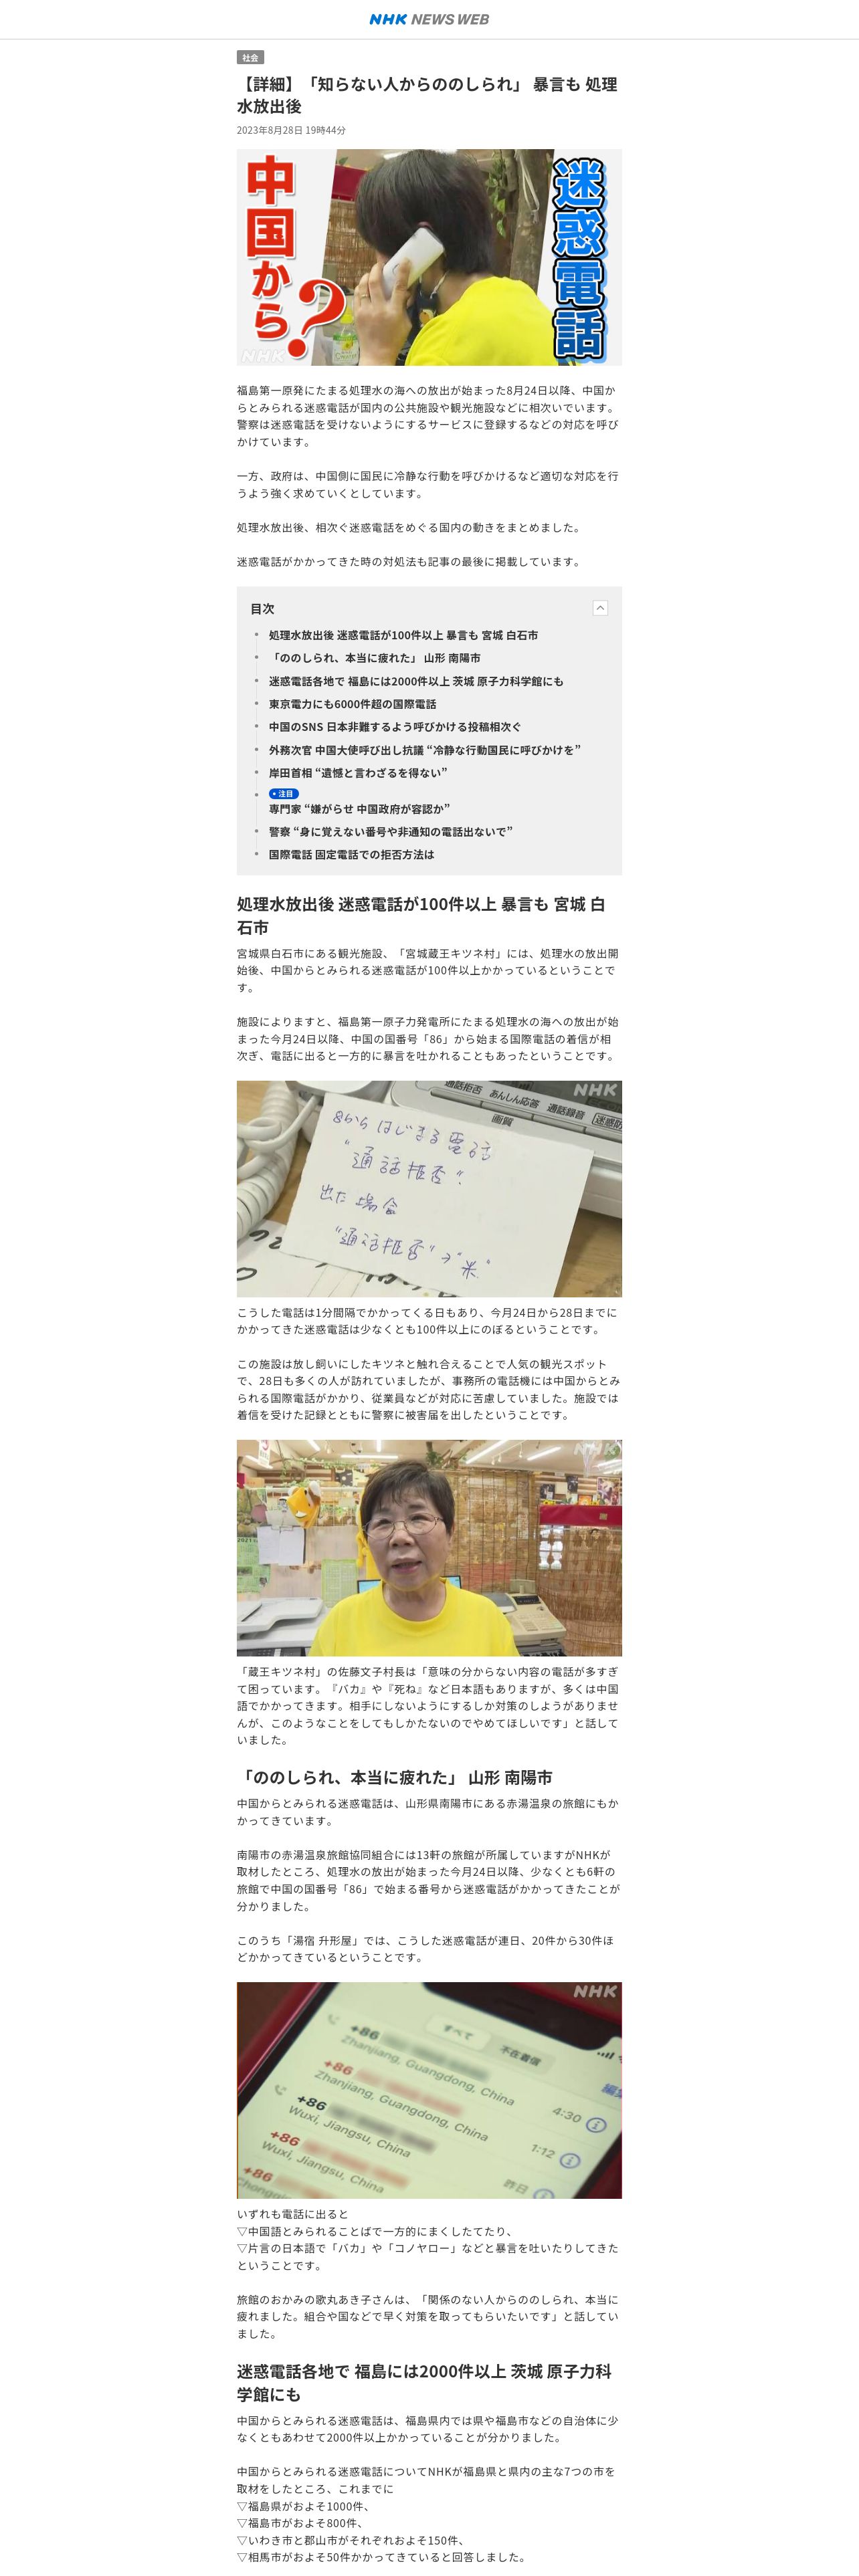 NHK NEWS WEB
社会
【詳細】「知らない人からののしられ」 暴言も 処理
水放出後
2023年8月28日 19時44分
中国から?
迷惑電話
NHK
福島第一原発にたまる処理水の海への放出が始まった8月24日以降、中国か
らとみられる迷惑電話が国内の公共施設や観光施設などに相次いでいます。
警察は迷惑電話を受けないようにするサービスに登録するなどの対応を呼び
かけています。
一方、政府は、中国側に国民に冷静な行動を呼びかけるなど適切な対応を行
うよう強く求めていくとしています。
処理水放出後、相次ぐ迷惑電話をめぐる国内の動きをまとめました。
迷惑電話がかかってきた時の対処法も記事の最後に掲載しています。
目次
処理水放出後 迷惑電話が100件以上 暴言も 宮城 白石市
「ののしられ、本当に疲れた」 山形 南陽市
迷惑電話各地で 福島には2000件以上 茨城 原子力科学館にも
東京電力にも6000件超の国際電話
中国のSNS 日本非難するよう呼びかける投稿相次ぐ
外務次官 中国大使呼び出し抗議 “冷静な行動国民に呼びかけを”
岸田首相 “遺憾と言わざるを得ない”
注目
専門家 “嫌がらせ 中国政府が容認か”
警察 “身に覚えない番号や非通知の電話出ないで”
国際電話 固定電話での拒否方法は
処理水放出後 迷惑電話が100件以上 暴言も 宮城 白
石市
宮城県白石市にある観光施設、「宮城蔵王キツネ村」には、処理水の放出開
始後、中国からとみられる迷惑電話が100件以上かかっているということで
す。
施設によりますと、福島第一原子力発電所にたまる処理水の海への放出が始
まった今月24日以降、中国の国番号「86」から始まる国際電話の着信が相
次ぎ、電話に出ると一方的に暴言を吐かれることもあったということです。
NHK
通話拒否 あんしん応答 通話録音 迷惑防
画質
86からはじまる電話
“通話拒否”
出た場合
“通話拒否”→“米”
こうした電話は1分間隔でかかってくる日もあり、今月24日から28日までに
かかってきた迷惑電話は少なくとも100件以上にのぼるということです。
この施設は放し飼いにしたキツネと触れ合えることで人気の観光スポット
で、28日も多くの人が訪れていましたが、事務所の電話機には中国からとみ
られる国際電話がかかり、従業員などが対応に苦慮していました。施設では
着信を受けた記録とともに警察に被害届を出したということです。
NHK
「蔵王キツネ村」の佐藤文子村長は「意味の分からない内容の電話が多すぎ
て困っています。『バカ』や『死ね』など日本語もありますが、多くは中国
語でかかってきます。相手にしないようにするしか対策のしようがありませ
んが、このようなことをしてもしかたないのでやめてほしいです」と話して
いました。
「ののしられ、本当に疲れた」 山形 南陽市
中国からとみられる迷惑電話は、山形県南陽市にある赤湯温泉の旅館にもか
かってきています。
南陽市の赤湯温泉旅館協同組合には13軒の旅館が所属していますがNHKが
取材したところ、処理水の放出が始まった今月24日以降、少なくとも6軒の
旅館で中国の国番号「86」で始まる番号から迷惑電話がかかってきたことが
分かりました。
このうち「湯宿 升形屋」では、こうした迷惑電話が連日、20件から30件ほ
どかかってきているということです。
NHK
すべて 不在着信
編集
+86
Zhanjiang, Guangdong, China
4:30
+86
Zhanjiang, Guangdong, China
1:12
+86
Wuxi, Jiangsu, China
昨日
+86
Wuxi, Jiangsu, China
+86
いずれも電話に出ると
▽中国語とみられることばで一方的にまくしたてたり、
▽片言の日本語で「バカ」や「コノヤロー」などと暴言を吐いたりしてきた
ということです。
旅館のおかみの歌丸あき子さんは、「関係のない人からののしられ、本当に
疲れました。組合や国などで早く対策を取ってもらいたいです」と話してい
ました。
迷惑電話各地で 福島には2000件以上 茨城 原子力科
学館にも
中国からとみられる迷惑電話は、福島県内では県や福島市などの自治体に少
なくともあわせて2000件以上かかっていることが分かりました。
中国からとみられる迷惑電話についてNHKが福島県と県内の主な7つの市を
取材をしたところ、これまでに
▽福島県がおよそ1000件、
▽福島市がおよそ800件、
▽いわき市と郡山市がそれぞれおよそ150件、
▽相馬市がおよそ50件かかってきていると回答しました。